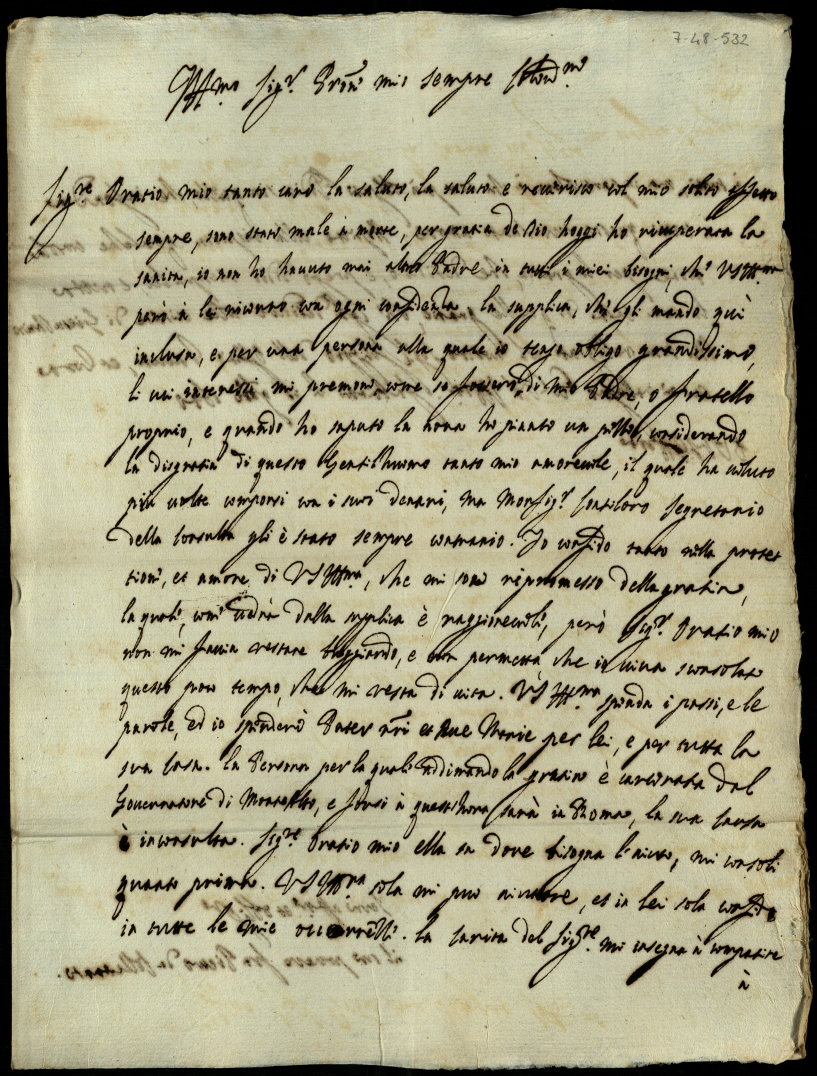 7-48-532
Ill.mo Sig.r Pron̄e mio sempre Col.mo
Sig.re Oratio mio tanto caro la saluto, la saluto e reverisco col mio solito affetto
sempre, sono stato male à morte, per gratia de Dio hoggi ho ricuperata la
sanità, io non ho havuto mai altro Padre in tutti i miei bisogni, che VS Ill.ma
però à lei ricorro con ogni confidenza. la supplica, che gli mando quì
inclusa, e per una persona alla quale io tengo obligo grandissimo,
li cui interessi mi premono, come se fossero di mio Padre, o fratello
proprio, e quando ho saputo la nova ho pianto un pezzo, considerando
la disgratia di questo Gentilhuomo tanto mio amorevole, il quale ha voluto
più volte comporsi con i suoi denari, ma Monsig.r Segretario
della Consulta gli è stato sempre contrario. Io confido tanto nella protet
tione, et amore di VS Ill.ma, che mi sono ripromesso della gratia,
la quale, come vedrà dalla supplica è raggionevole, però Sig.r Oratio mio
non mi faccia restare buggiardo, e non permetta, che io viva sconsolato
questo poco tempo, che mi resta di vita. VS Ill.ma spenda i passi, e le
parole, ed io spenderò Pater n̄ri et Ave Marie per lei, e per tutta la
sua Casa. la Persona per la quale addimando la gratia è carcerata dal
Governatore di Montalto, e forsi à quest'hora sarà in Roma, la sua causa
è in consulta. Sig.re Oratio mio ella sa dove bisogna l'aiuto, mi consoli
quanto prima. VS Ill.ma sola mi può aiutare, et in lei sola confido
in tutte le mie occorrenze. la Carità del Sig.re mi insegna à compatire
à